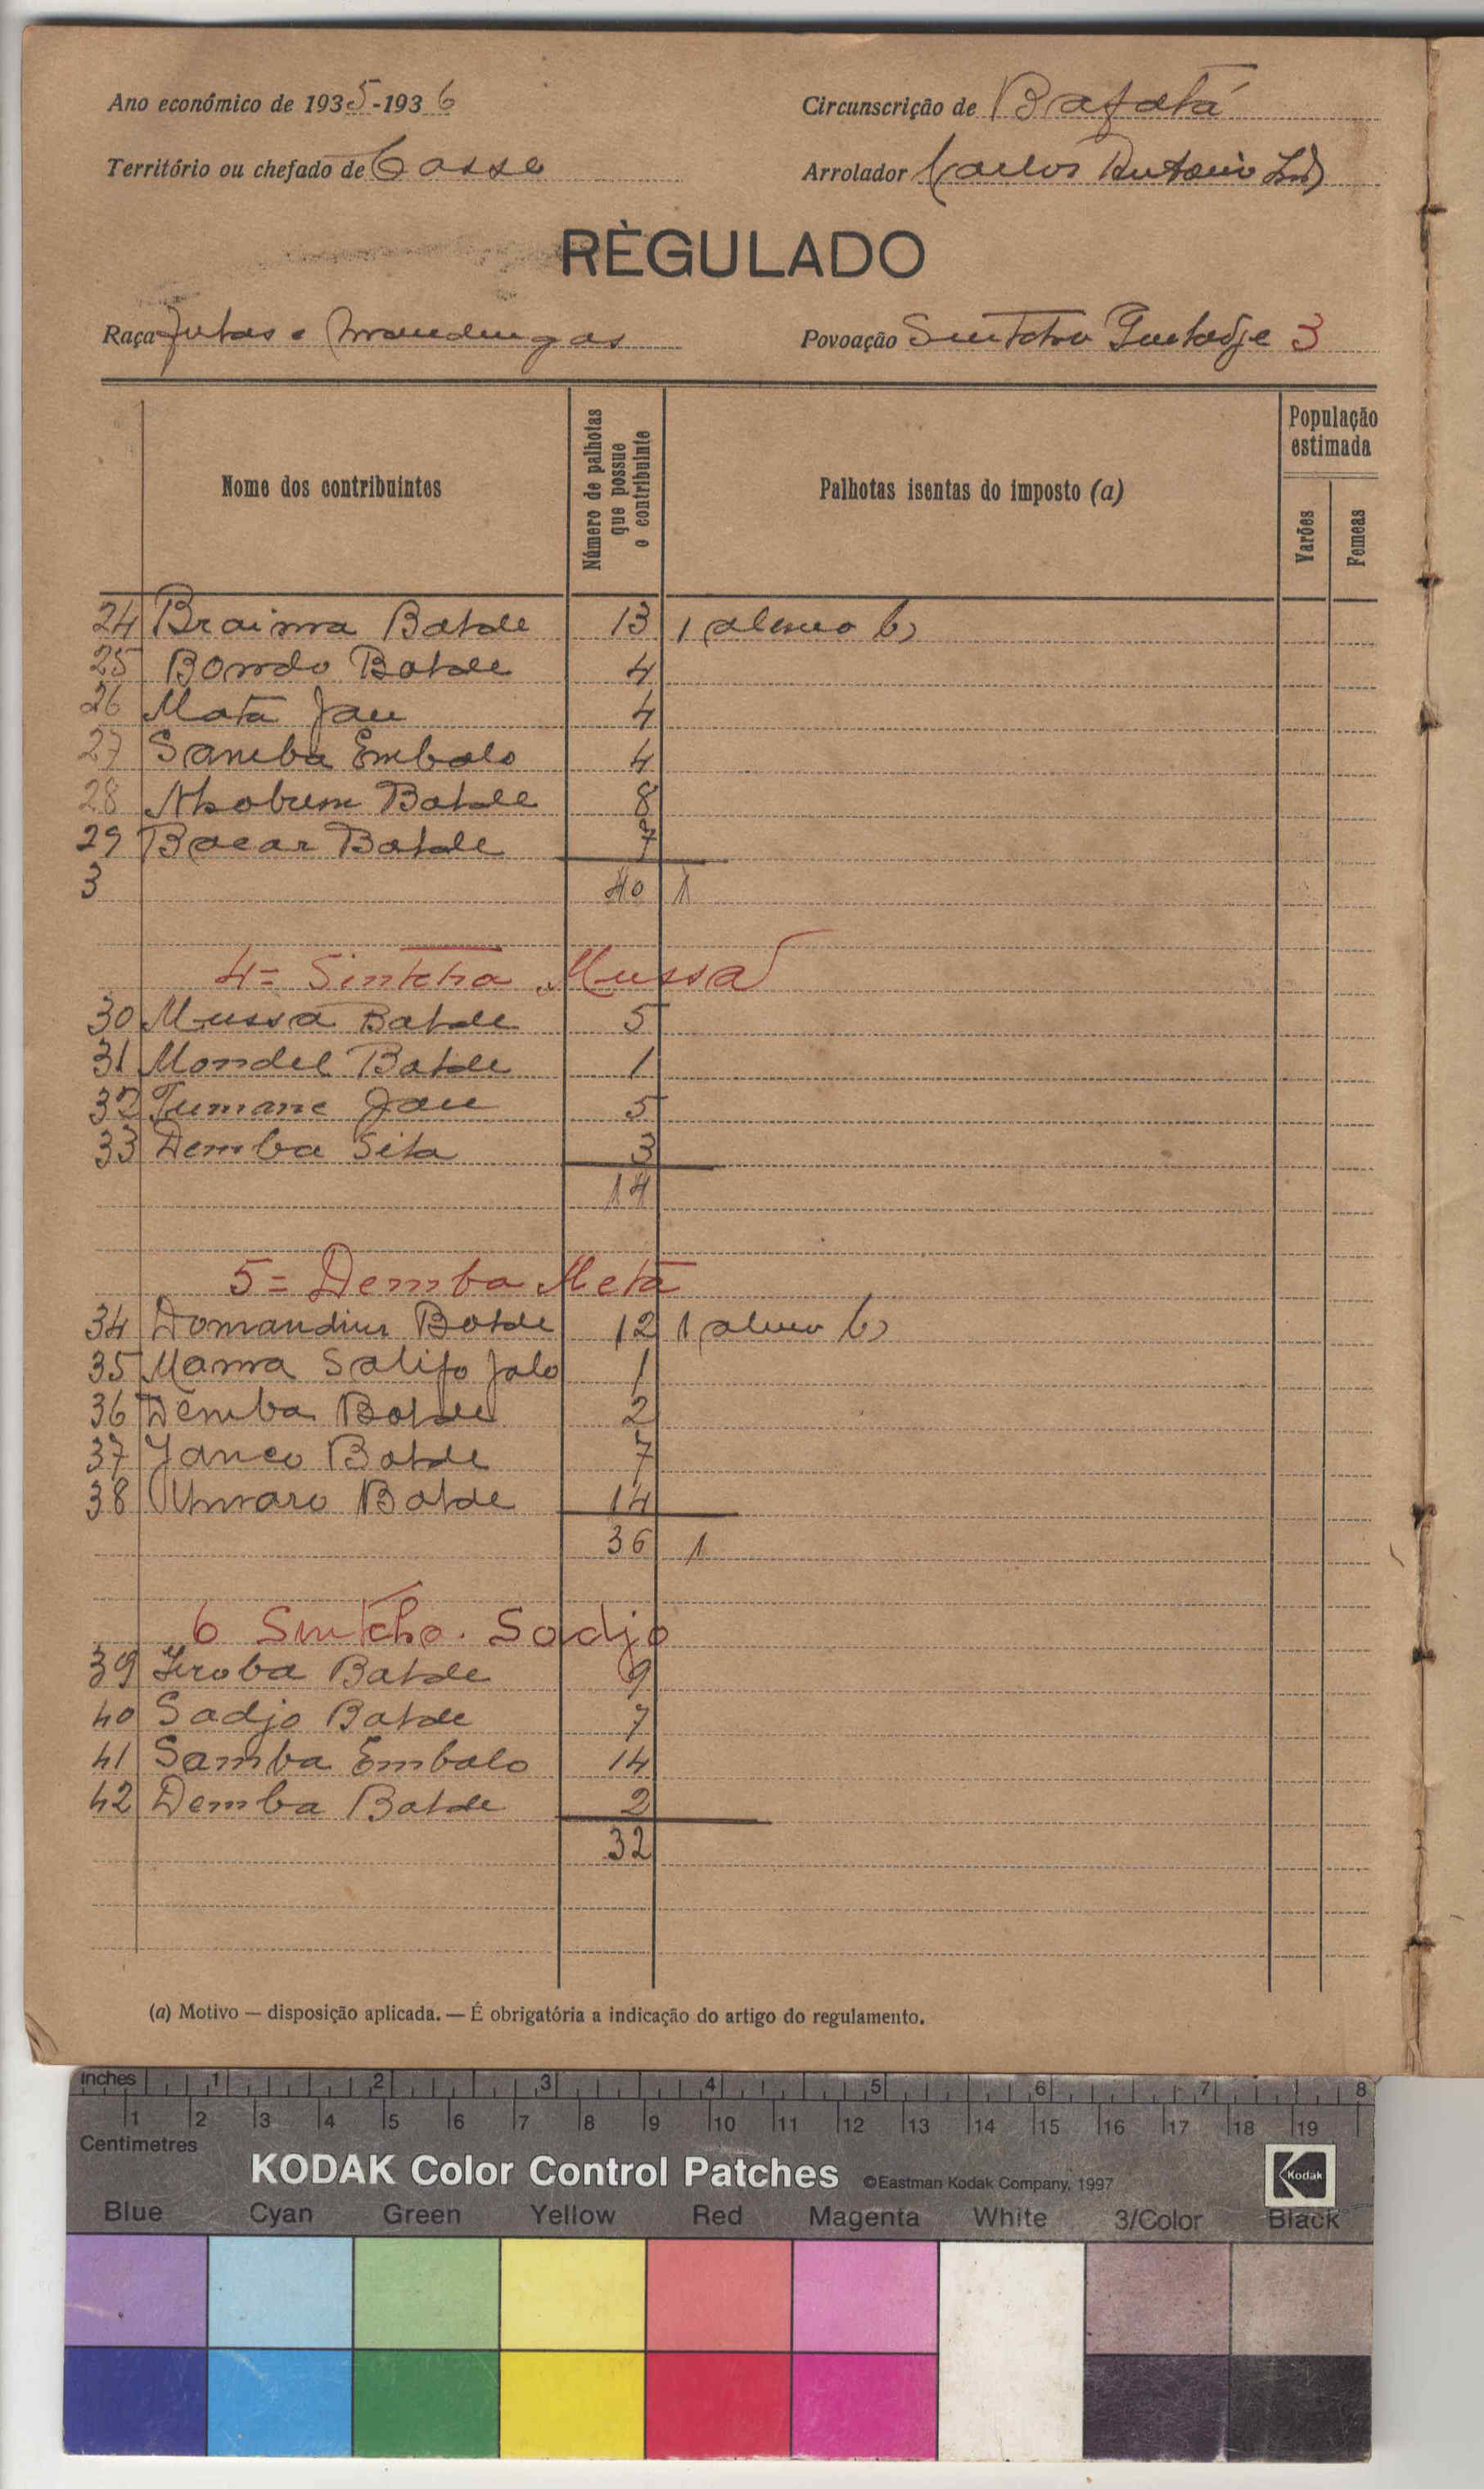 Ano económico de 1935-1936
Circunscrição de Bafatá
Território ou chefado de Cosse
Arrolador Carlos Antonio
RÈGULADO
Raça Fulas e Mandingas
Povoação Sintcho 3
Nome dos contribuintes
Número de palhotas que possue o contribuinte
Palhotas isentas do imposto (a)
População estimada
Varões
Femeas
24 Braima Balde 13 1 aleno b)
25 Bondo Balde 4
26 Mata Jau 4
27 Samba Embalo 4
28 Balde 8
29 Bacar Balde 7
3 40 1
4= Sintcha Mussá
30 Mussa Balde 5
31 Mondel Balde 1
32 Tumane Jau 5
33 Demba Sita 3
14
5= Demba Metá
34 Balde 12 1 aleno b)
35 Mama Salifo Jalo 1
36 Demba Balde 2
37 Janco Balde 7
38 Umaro Balde 14
36 1
6 Sintcho. Sadjo
39 Ieroba Balde 9
40 Sadjo Balde 7
41 Samba Embalo 14
42 Demba Balde 2
32
(a) Motivo — disposição aplicada. — É obrigatória a indicação do artigo do regulamento.
Inches 1 2 3 4 5 6 7 8
1 2 3 4 5 6 7 8 9 10 11 12 13 14 15 16 17 18 19
Centimetres
KODAK Color Control Patches ©Eastman Kodak Company, 1997 Kodak
Blue Cyan Green Yellow Red Magenta White 3/Color Black